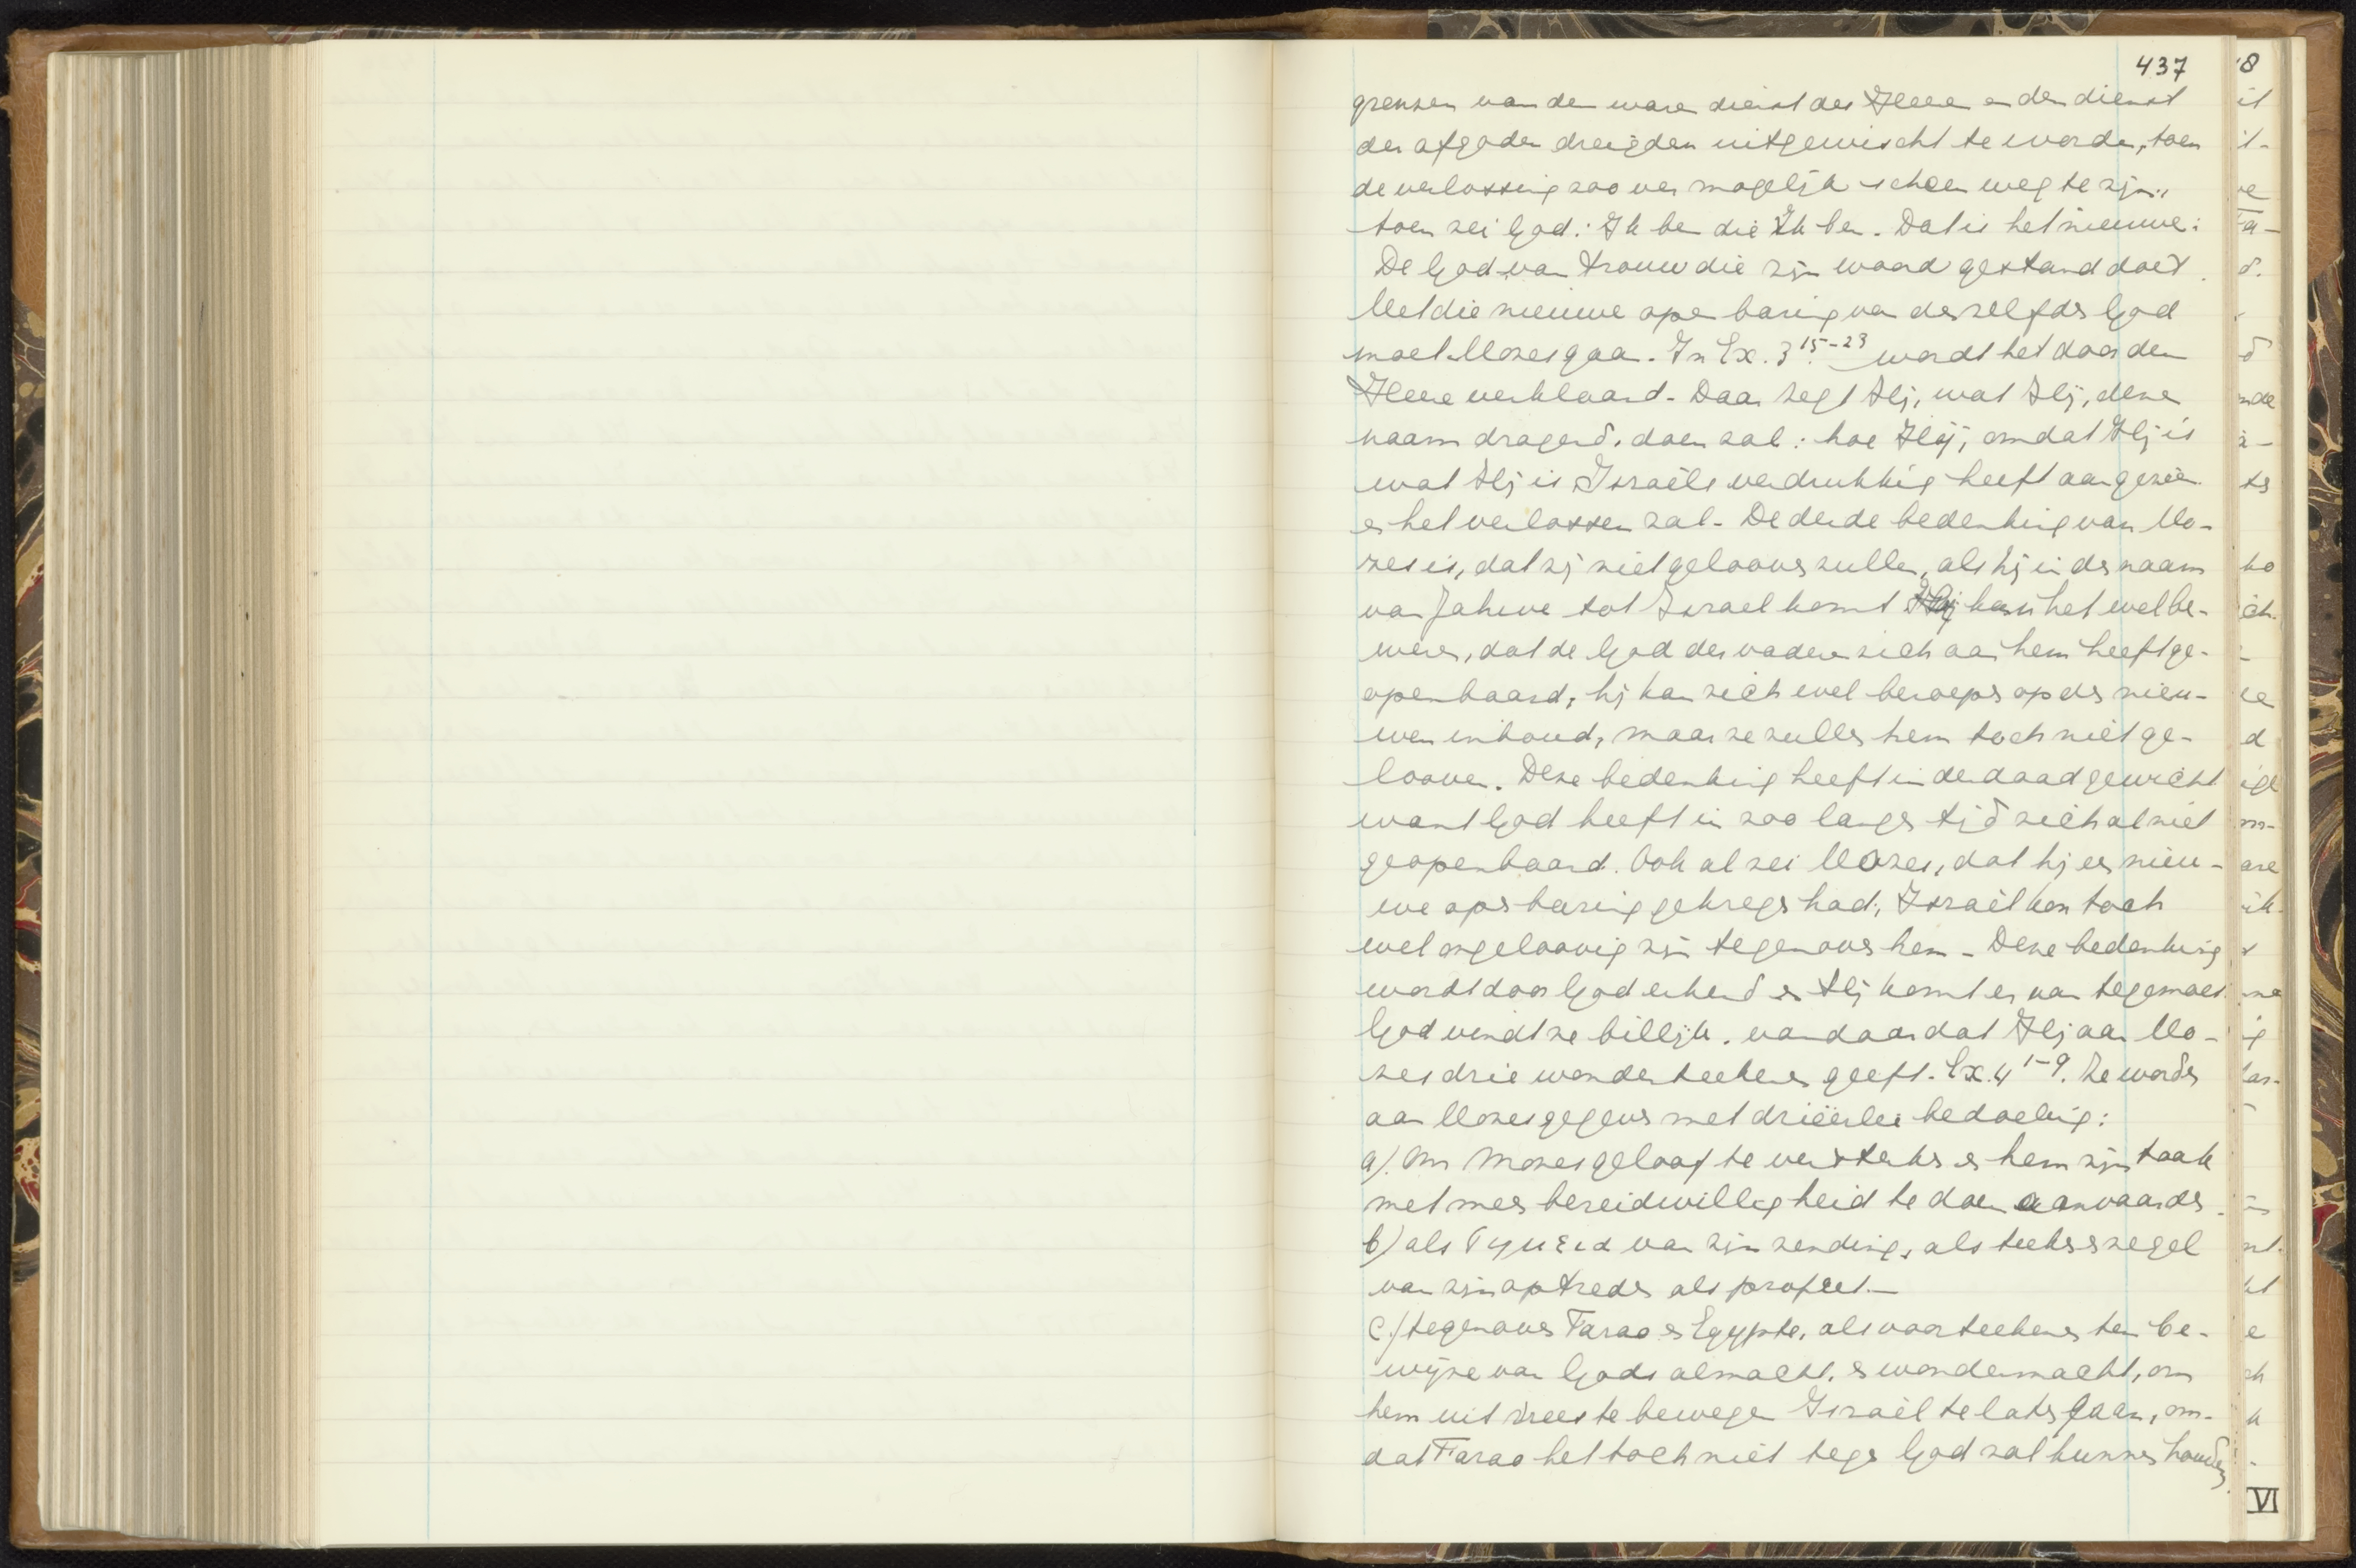 437
grenzen van den ware dienst des Heere en den dienst
der afgoden dreigden uitgewischt te worden, toen
de verlossing zoo ver mogelijk scheen weg te zijn,
toen zei God: Ik ben die Ik ben. Dat is het nieuwe:
De God van trouw die zijn woord gestand doet.
Met die nieuwe openbaring van dezelfde God
moet Mozes gaan. In Ex. 3 15-23 wordt het door den
Heere verklaard. Daar zegt Hij, wat Hij, deze
naam dragend, doen zal: hoe Hij, omdat Hij is
wat Hij is Israëls verdrukking heeft aangezien
en het verlossen zal. De derde bedenking van Mo-
zes is, dat zij niet gelooven zullen, als hij in de naam
van Jahwe tot Israel komt Hij kan het wel be-
weren, dat de God der vaderen zich aan hem heeft ge-
openbaard, hij kan zich wel beroepen op de nieu-
wen inhoud, maar ze zullen hem toch niet ge-
looven. Deze bedenking heeft inderdaad gewicht
want God heeft in zoo langen tijd zich al niet
geopenbaard. Ook al zei Mozes, dat hij een nieu-
we openbaring gekregen had, Israël kon toch
wel ongeloovig zijn tegenover hem. Deze bedenking
wordt door God erkend en Hij komt er van tegemoet
God vindt ze billijk. vandaar dat Hij aan Mo-
zes drie wonderteekenen geeft. Ex. 4 1-9. Ze worden
aan Mozes gegeven met driëerlei bedoeling:
a). Om Mozes geloof te versterken en hem zijn taak
met meer bereidwilligheid te doen aanvaarden.
b) als σημεια van zijn zending, als teeken en zegel
van zijn optreden als profeet.—
c.) tegenover Farao en Egypte, als voorteekenen ten be-
wijze van Gods almacht, en wondermacht, om
hem uit vrees te bewegen Israël te laten gaan, om-
dat Farao het toch niet tegen God zal kunnen houden.
VI